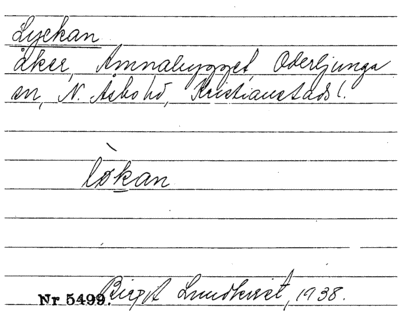 Lyckan
åker, Amnabygget, Oderljunga
sn, N. Åsbo hd, Kristianstads l.
lökan
Nr 5499. Birgit Lundkvist, 1938.